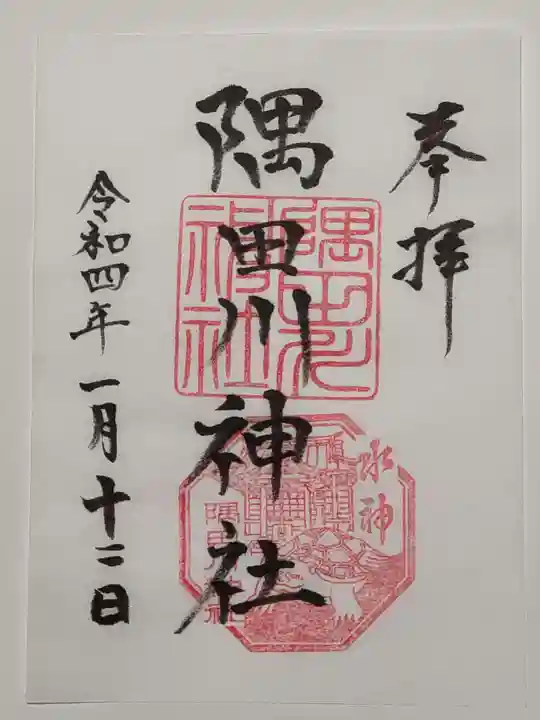 奉拝
隅田川神社
令和四年一月十二日
隅田川神社
水神
隅田川神社